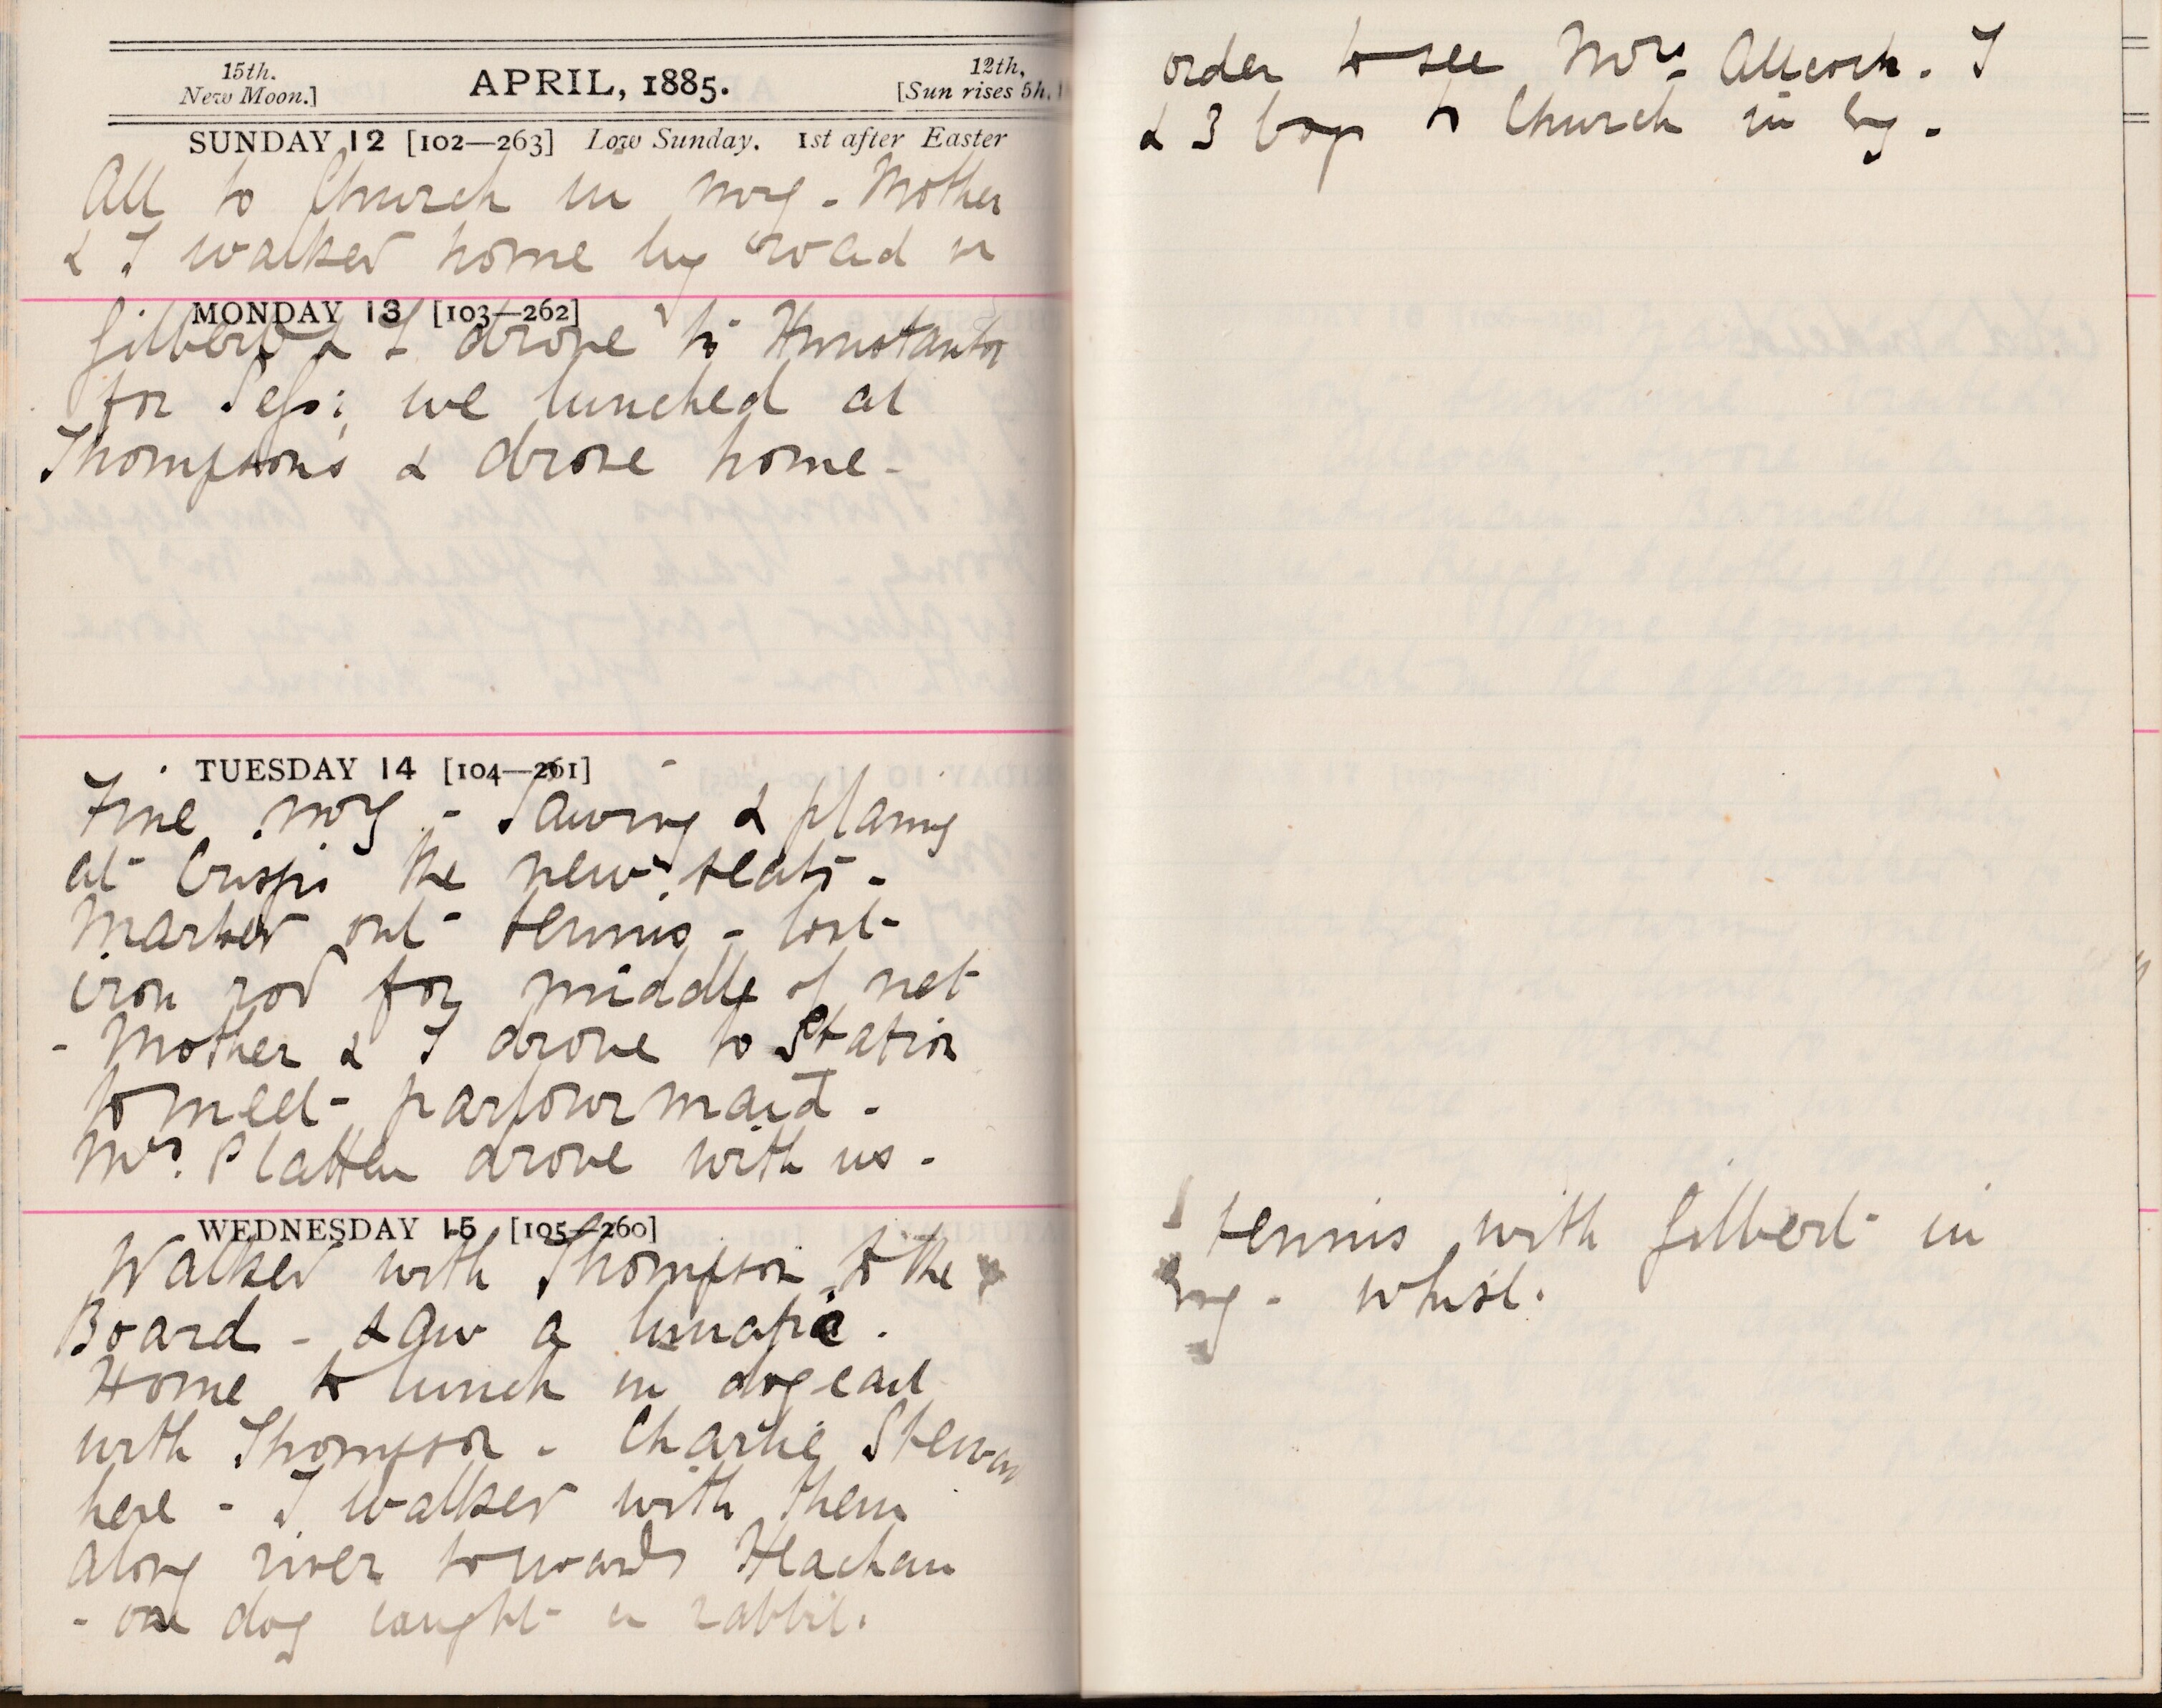 15th.
New Moon.]
APRIL, 1885.
12th,
[Sun rises 5h.
SUNDAY 12 [102—263] Low Sunday. 1st after Easter
All to Church in mng - Mother
& I walked home by road in
order to see Mrs. Allcock. I
& 3 boys to Church in evg -
MONDAY 13 [103—262]
Gilbert & I drove to Hunstanton
for Sess: we lunched at
Thompson's & drove home -
TUESDAY 14 [104—261]
Fine mng - Sawing & planing
at Crisp's the new seats -
Marked out tennis - lost
iron rod for middle of net
- Mother & I drove to Station
to meet parlourmaid -
Mrs. Platten drove with us -
WEDNESDAY 15 [105—260]
Walked with Thompson to the
Board - saw a lunatic.
Home to lunch in dogcart
with Thompson - Charlie Stewart
here - I walked with them
along river towards Heacham
- our dog caught a rabbit.
tennis with Gilbert in
evg - whist.